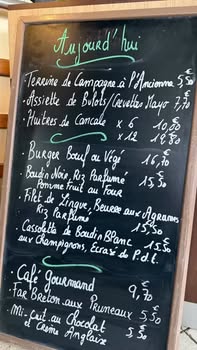 Aujourd'hui
- Terrine de Campagne à l'Ancienne 5,50€
- Assiette de Bulots/Crevettes Mayo 7,70€
- Huitres de Cancale x 6 10,50€
x 12 19,80
- Burger Bœuf ou Végé 16,70€
- Boudin Noir, Riz Parfumé
Pomme Fruit au Four 15,50€
- Filet de Lingue, Beurre aux Agrumes
Riz Parfumé 15,50€
- Cassolette de Boudin Blanc 15,50€
aux Champignons, Ecrasé de P.d.t
- Café Gourmand 9,70€
- Far Breton aux Pruneaux 5,50€
- Mi-cuit au Chocolat 5,50€
et Crème Anglaise